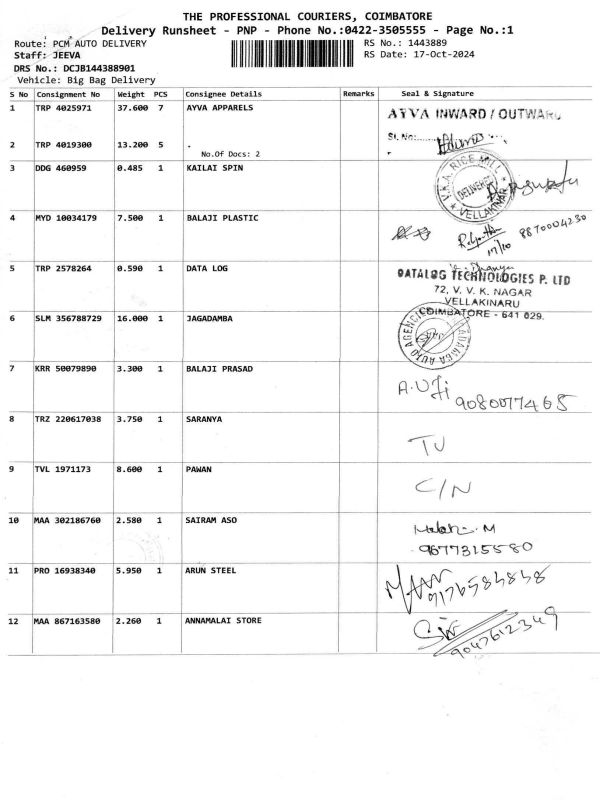 THE PROFESSIONAL COURIERS, COIMBATORE
Delivery Runsheet - PNP - Phone No.:0422-3505555 - Page No.:1
Route: PCM AUTO DELIVERY RS No.: 1443889
Staff: JEEVA RS Date: 17-Oct-2024
DRS No.: DCJB144388901
Vehicle: Big Bag Delivery
S No Consignment No Weight PCS Consignee Details Remarks Seal & Signature
1 TRP 4025971 37.600 7 AYVA APPARELS AYVA INWARD / OUTWARD
Sl. No:
2 TRP 4019300 13.200 5 .
No.Of Docs: 2
3 DDG 460959 0.485 1 KAILAI SPIN
V.K.A. RICE MILL
DELIVERED
VELLAKINAR
4 MYD 10034179 7.500 1 BALAJI PLASTIC
17/10 8870004230
5 TRP 2578264 0.590 1 DATA LOG
DATALOG TECHNOLOGIES P. LTD
72, V. V. K. NAGAR
VELLAKINARU
COIMBATORE - 641 029.
6 SLM 356788729 16.000 1 JAGADAMBA
JAGADAMBA AUTO AGENCIES
7 KRR 50079890 3.300 1 BALAJI PRASAD
9080077465
8 TRZ 220617038 3.750 1 SARANYA
TU
9 TVL 1971173 8.600 1 PAWAN
C/N
10 MAA 302186760 2.580 1 SAIRAM ASO
M
9677315580
11 PRO 16938340 5.950 1 ARUN STEEL
9176584848
12 MAA 867163580 2.260 1 ANNAMALAI STORE
9047612349